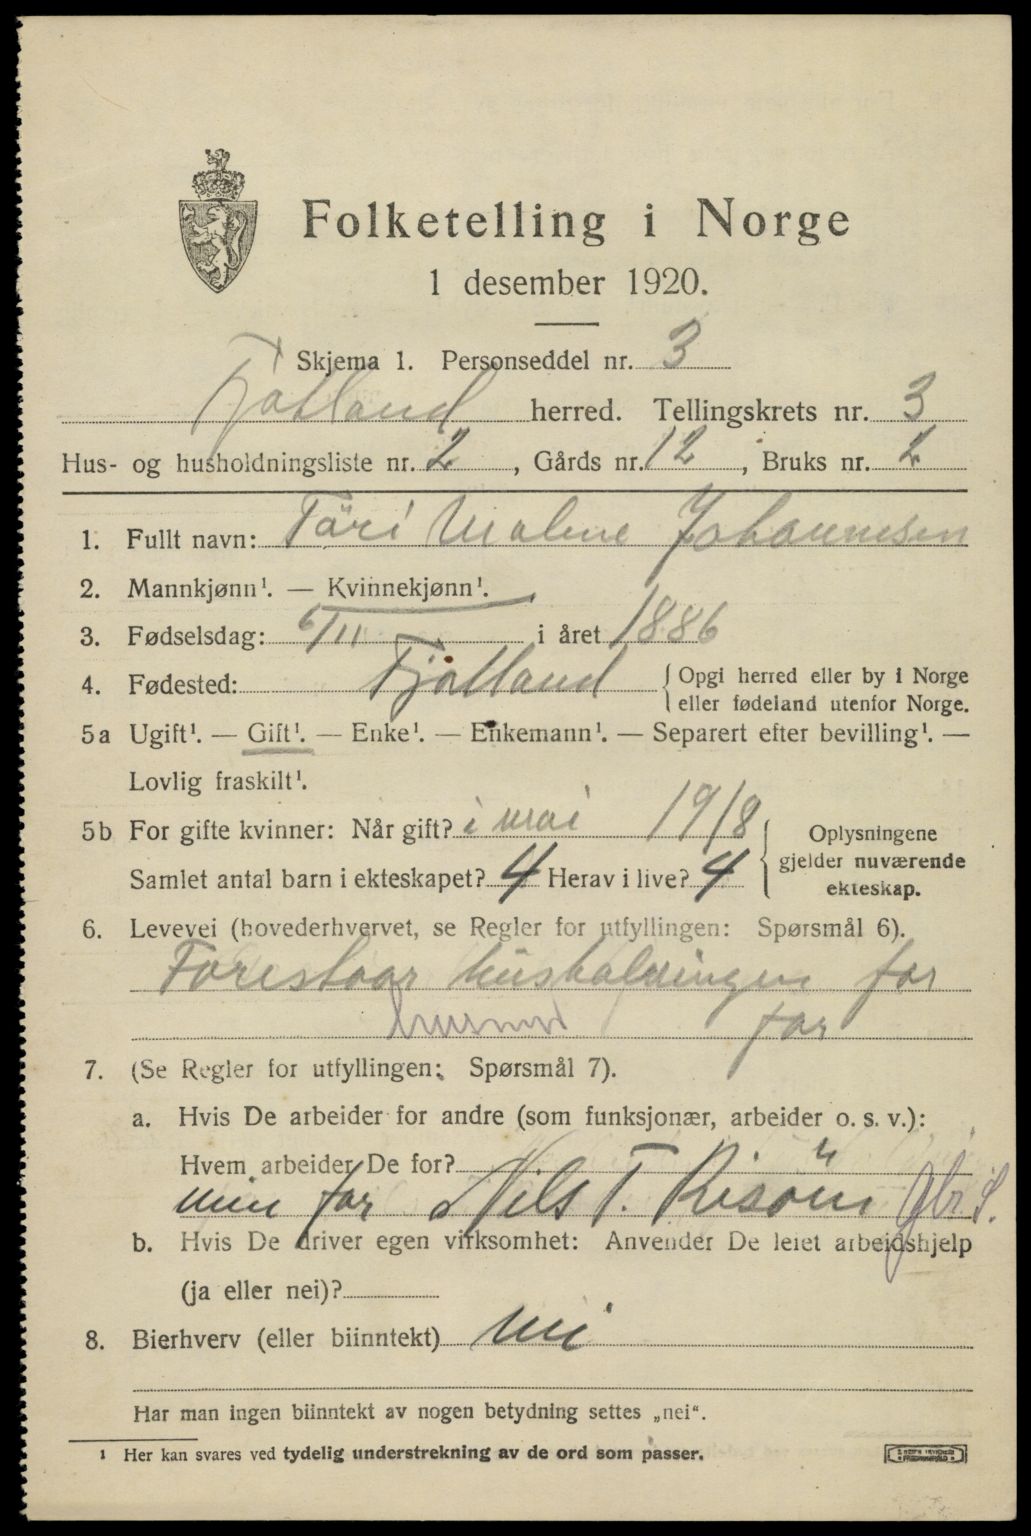 Folketelling i Norge
1 desember 1920.
Skjema 1. Personseddel nr. 3
Fjotland herred. Tellingskrets nr. 3
Hus- og husholdningsliste nr. 2, Gårds nr. 12, Bruks nr. 2
1. Fullt navn: Tori Malene Johannesen
2. Mannkjønn¹. — Kvinnekjønn¹.
3. Fødselsdag: 6/11 i året 1886
4. Fødested: Fjotland { Opgi herred eller by i Norge
eller fødeland utenfor Norge.
5a Ugift¹. — Gift¹. — Enke¹. — Enkemann¹. — Separert efter bevilling¹. —
Lovlig fraskilt¹.
5b For gifte kvinner: Når gift? i mai 1918
Samlet antal barn i ekteskapet? 4 Herav i live? 4
} Oplysningene
gjelder nuværende
ekteskap.
6. Levevei (hovederhvervet, se Regler for utfyllingen: Spørsmål 6).
Forestaar husholdningen for
far
7. (Se Regler for utfyllingen: Spørsmål 7).
a. Hvis De arbeider for andre (som funksjonær, arbeider o. s. v.):
Hvem arbeider De for?
min far Nils T. Risøin gbr S.
b. Hvis De driver egen virksomhet: Anvender De leiet arbeidshjelp
(ja eller nei)?
8. Bierhverv (eller biinntekt) nei
Har man ingen biinntekt av nogen betydning settes „nei“.
¹ Her kan svares ved tydelig understrekning av de ord som passer.